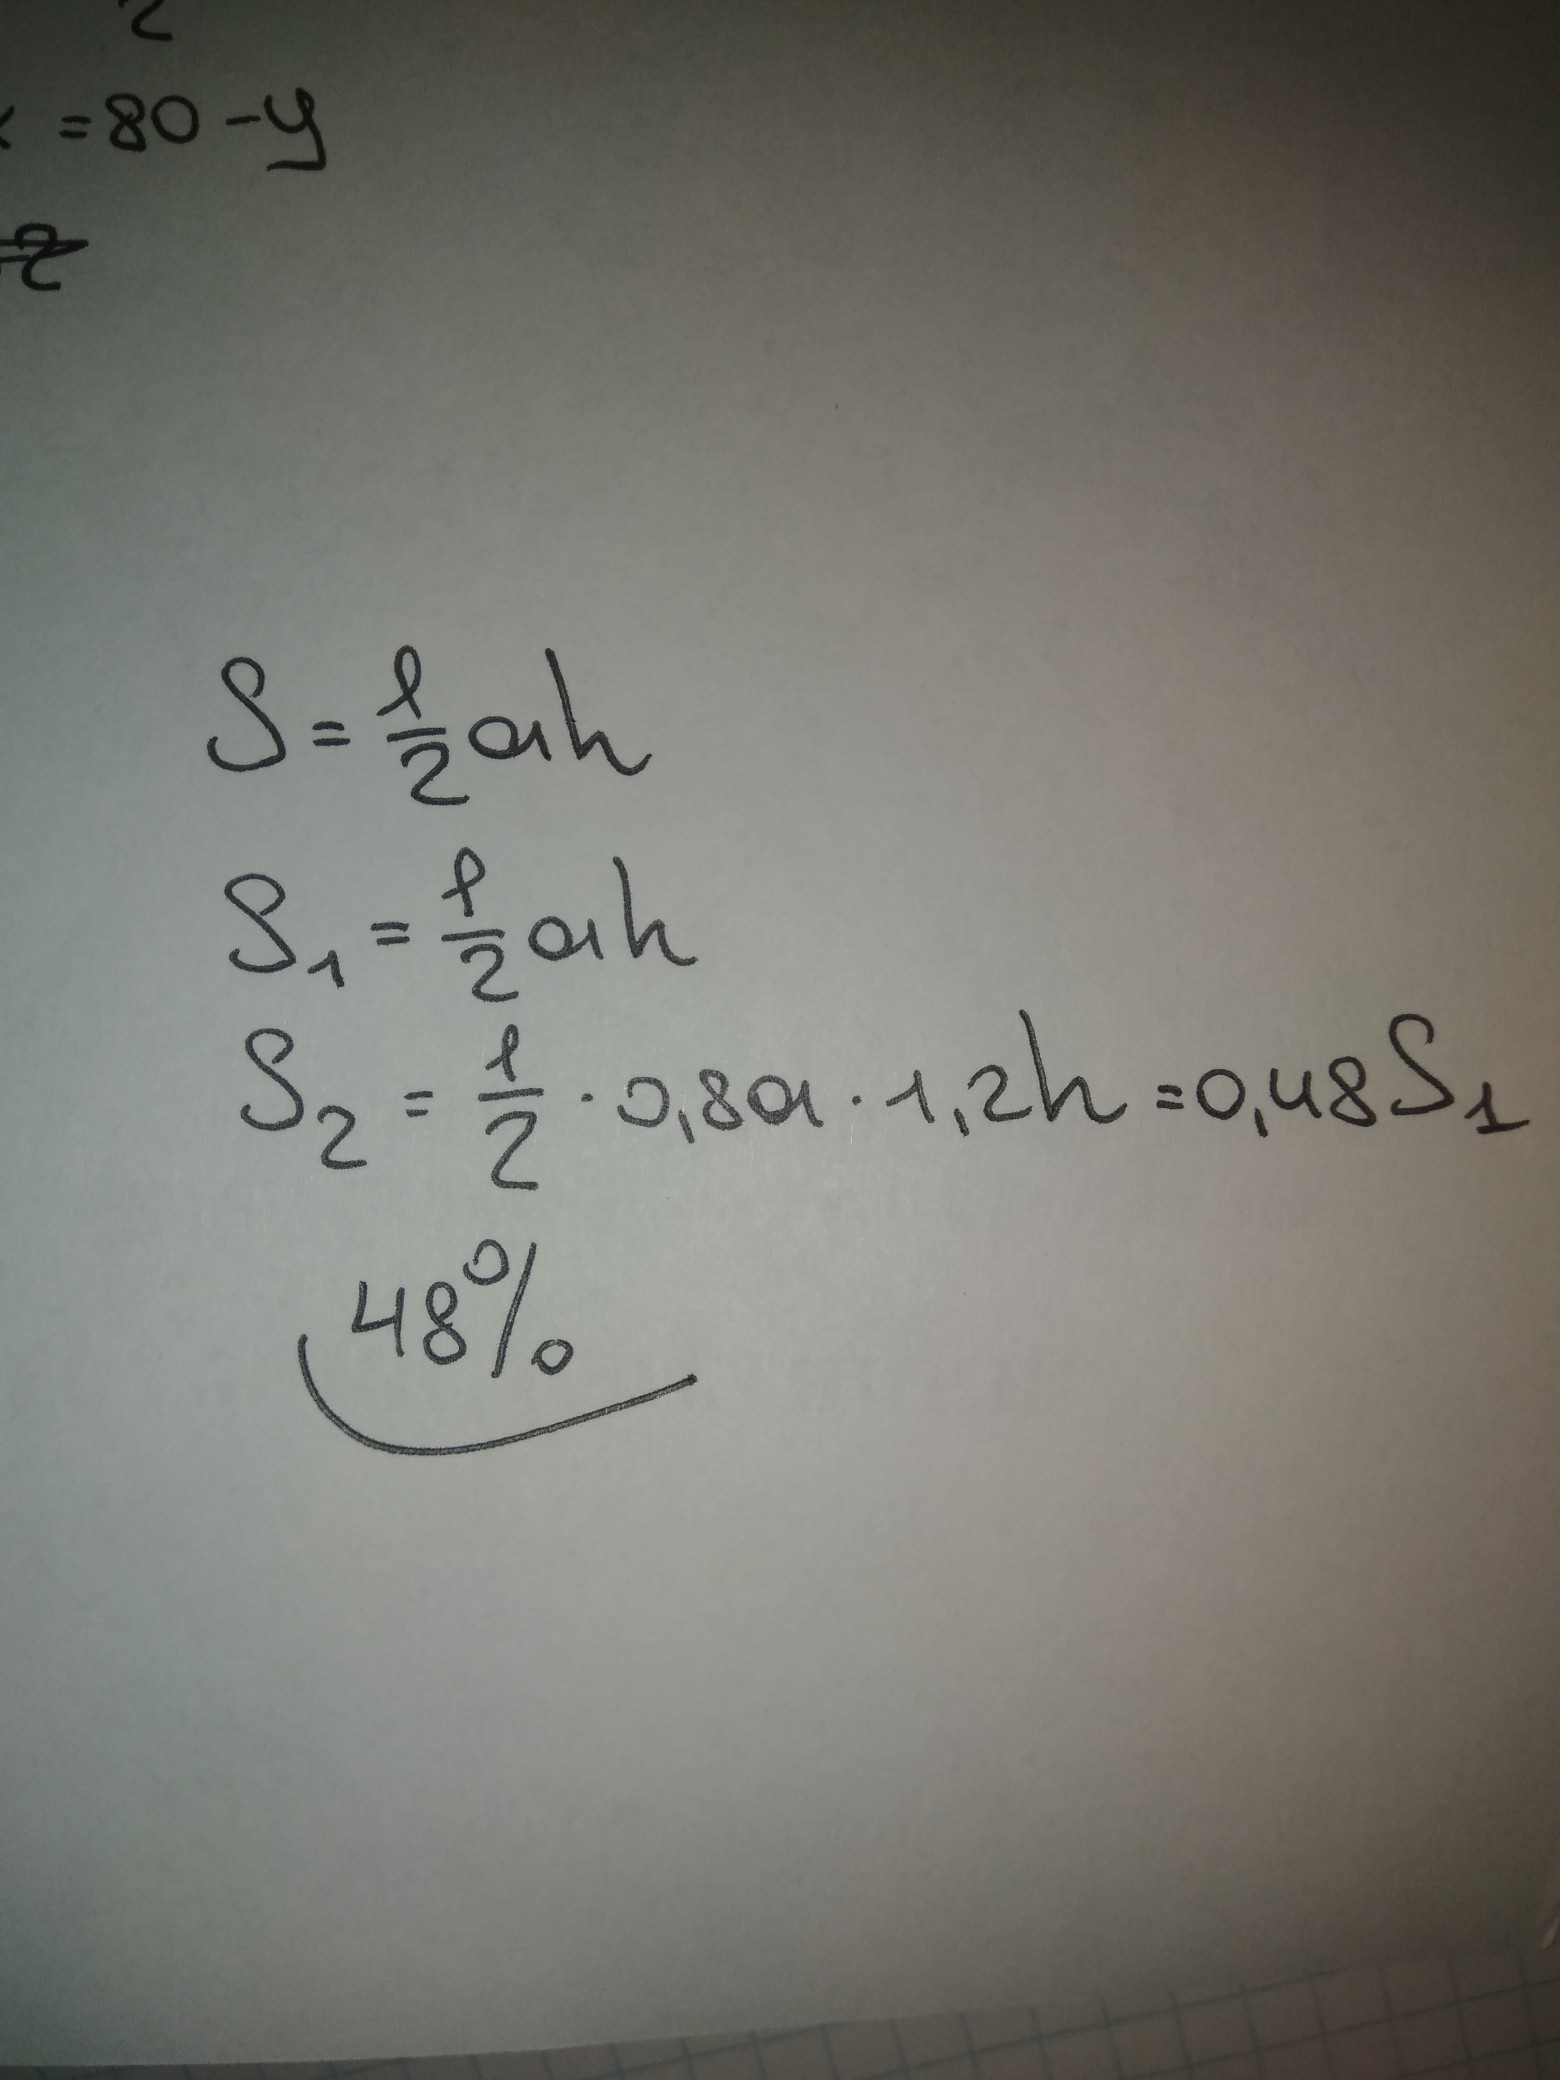 2
= 80 - y
S = 1/2 ah
S₁ = 1/2 ah
S₂ = 1/2 · 0,8a · 1,2h = 0,48S₁
48%